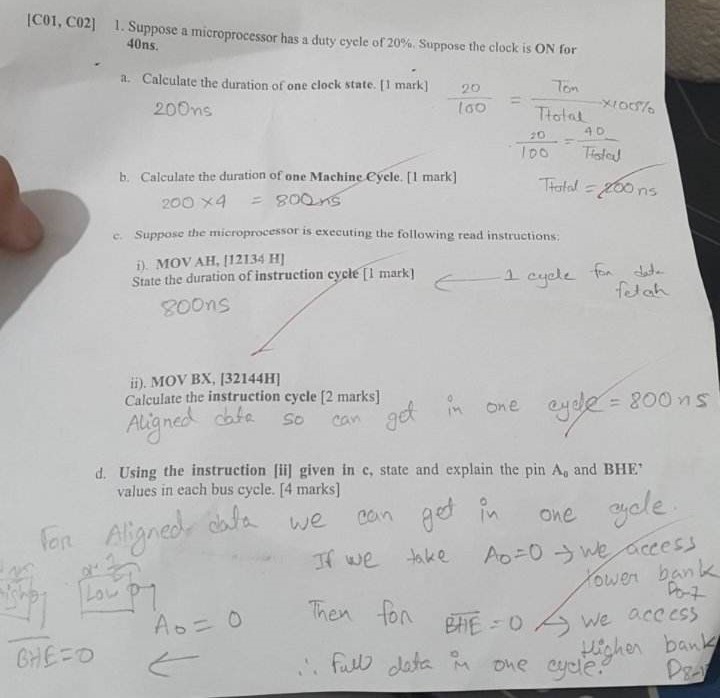 [C01, C02] 1. Suppose a microprocessor has a duty cycle of 20%. Suppose the clock is ON for
40ns.
a. Calculate the duration of one clock state. [1 mark]
200ns
20/100 = Ton/Ttotal ×100%
20/100 = 40/Ttotal
Ttotal = 200 ns
b. Calculate the duration of one Machine Cycle. [1 mark]
200 ×4 = 800ns
c. Suppose the microprocessor is executing the following read instructions:
i). MOV AH, [12134 H]
State the duration of instruction cycle [1 mark]
← 1 cycle for data
fetch
800ns
ii). MOV BX, [32144H]
Calculate the instruction cycle [2 marks]
Aligned data so can get in one cycle = 800ns
d. Using the instruction [ii] given in c, state and explain the pin A0 and BHE'
values in each bus cycle. [4 marks]
For Aligned data we can get in one cycle.
If we take A0=0 → we access
lower bank
D0-7
Low
A0 = 0
Then for BHE = 0 → we access
Higher bank
BHE=0 ←
∴ Full data in one cycle.